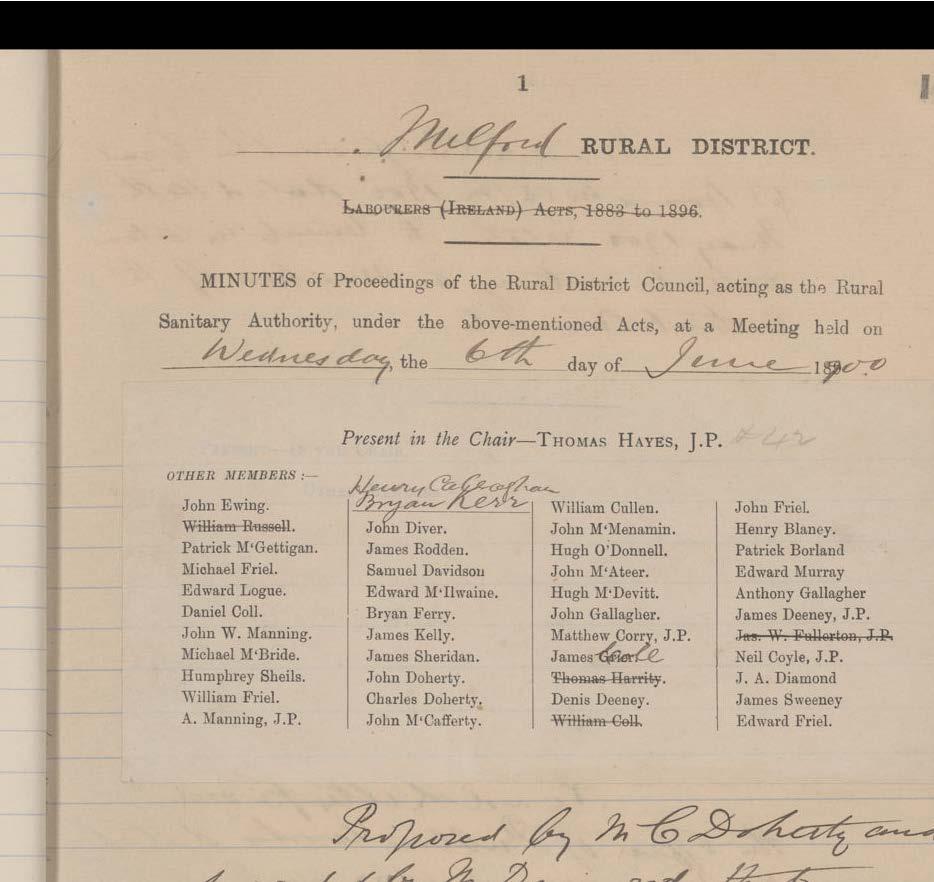 1
Milford RURAL DISTRICT.
LABOURERS (IRELAND) ACTS, 1883 to 1896.
MINUTES of Proceedings of the Rural District Council, acting as the Rural
Sanitary Authority, under the above-mentioned Acts, at a Meeting held on
Wednesday, the 6th day of June 1900.
Present in the Chair—THOMAS HAYES, J.P. & 42
OTHER MEMBERS :—
John Ewing.
William Russell.
Patrick M‘Gettigan.
Michael Friel.
Edward Logue.
Daniel Coll.
John W. Manning.
Michael M‘Bride.
Humphrey Sheils.
William Friel.
A. Manning, J.P.
Henry Callaghan
Bryan Kerr
John Diver.
James Rodden.
Samuel Davidson
Edward M‘Ilwaine.
Bryan Ferry.
James Kelly.
James Sheridan.
John Doherty.
Charles Doherty.
John M‘Cafferty.
William Cullen.
John M‘Menamin.
Hugh O'Donnell.
John M‘Ateer.
Hugh M‘Devitt.
John Gallagher.
Matthew Corry, J.P.
James
Thomas Harrity.
Denis Deeney.
William Coll.
John Friel.
Henry Blaney.
Patrick Borland
Edward Murray
Anthony Gallagher
James Deeney, J.P.
Jas. W. Fullerton, J.P.
Neil Coyle, J.P.
J. A. Diamond
James Sweeney
Edward Friel.
Proposed by M C Doherty and